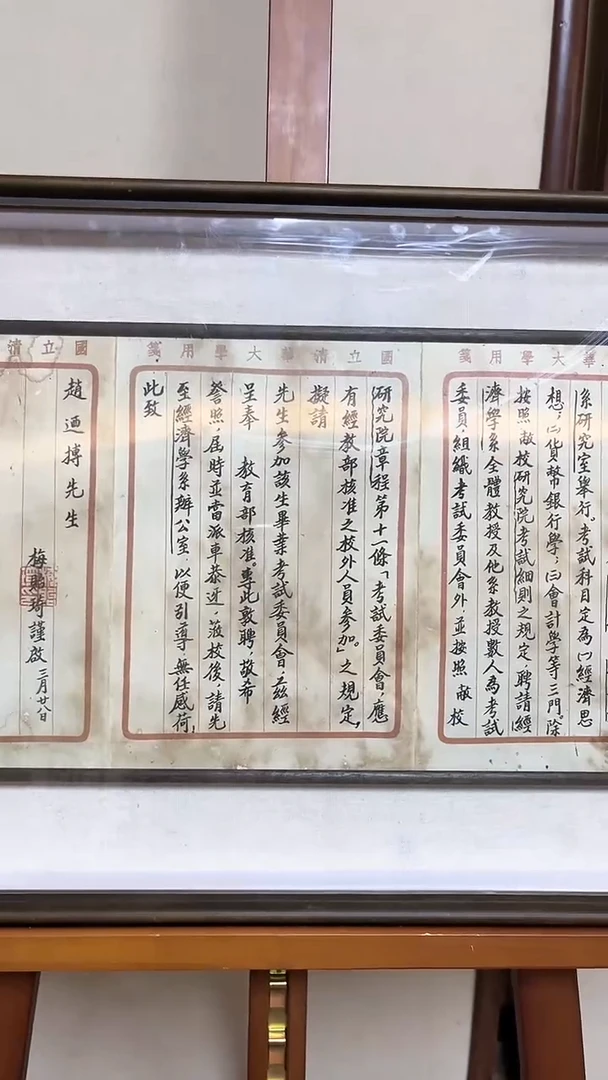 華大學用箋
系研究室舉行。考試科目定為㈠經濟思
想；㈡貨幣銀行學；㈢會計學等三門。除
按照敝校研究院考試細則之規定，聘請經
濟學系全體教授及他系教授數人為考試
委員，組織考試委員會外，並按照敝校
國立清華大學用箋
研究院章程第十一條「考試委員會，應
有經教部核准之校外人員參加。」之規定，
擬請
先生參加該生畢業考試委員會，茲經
呈奉 教育部核准。專此敦聘，敬希
詧照，屆時並當派車恭迓，蒞校後，請先
至經濟學系辦公室，以便引導，無任感荷，
此致
國立清
趙迺摶先生
梅貽琦謹啟 三月廿八日